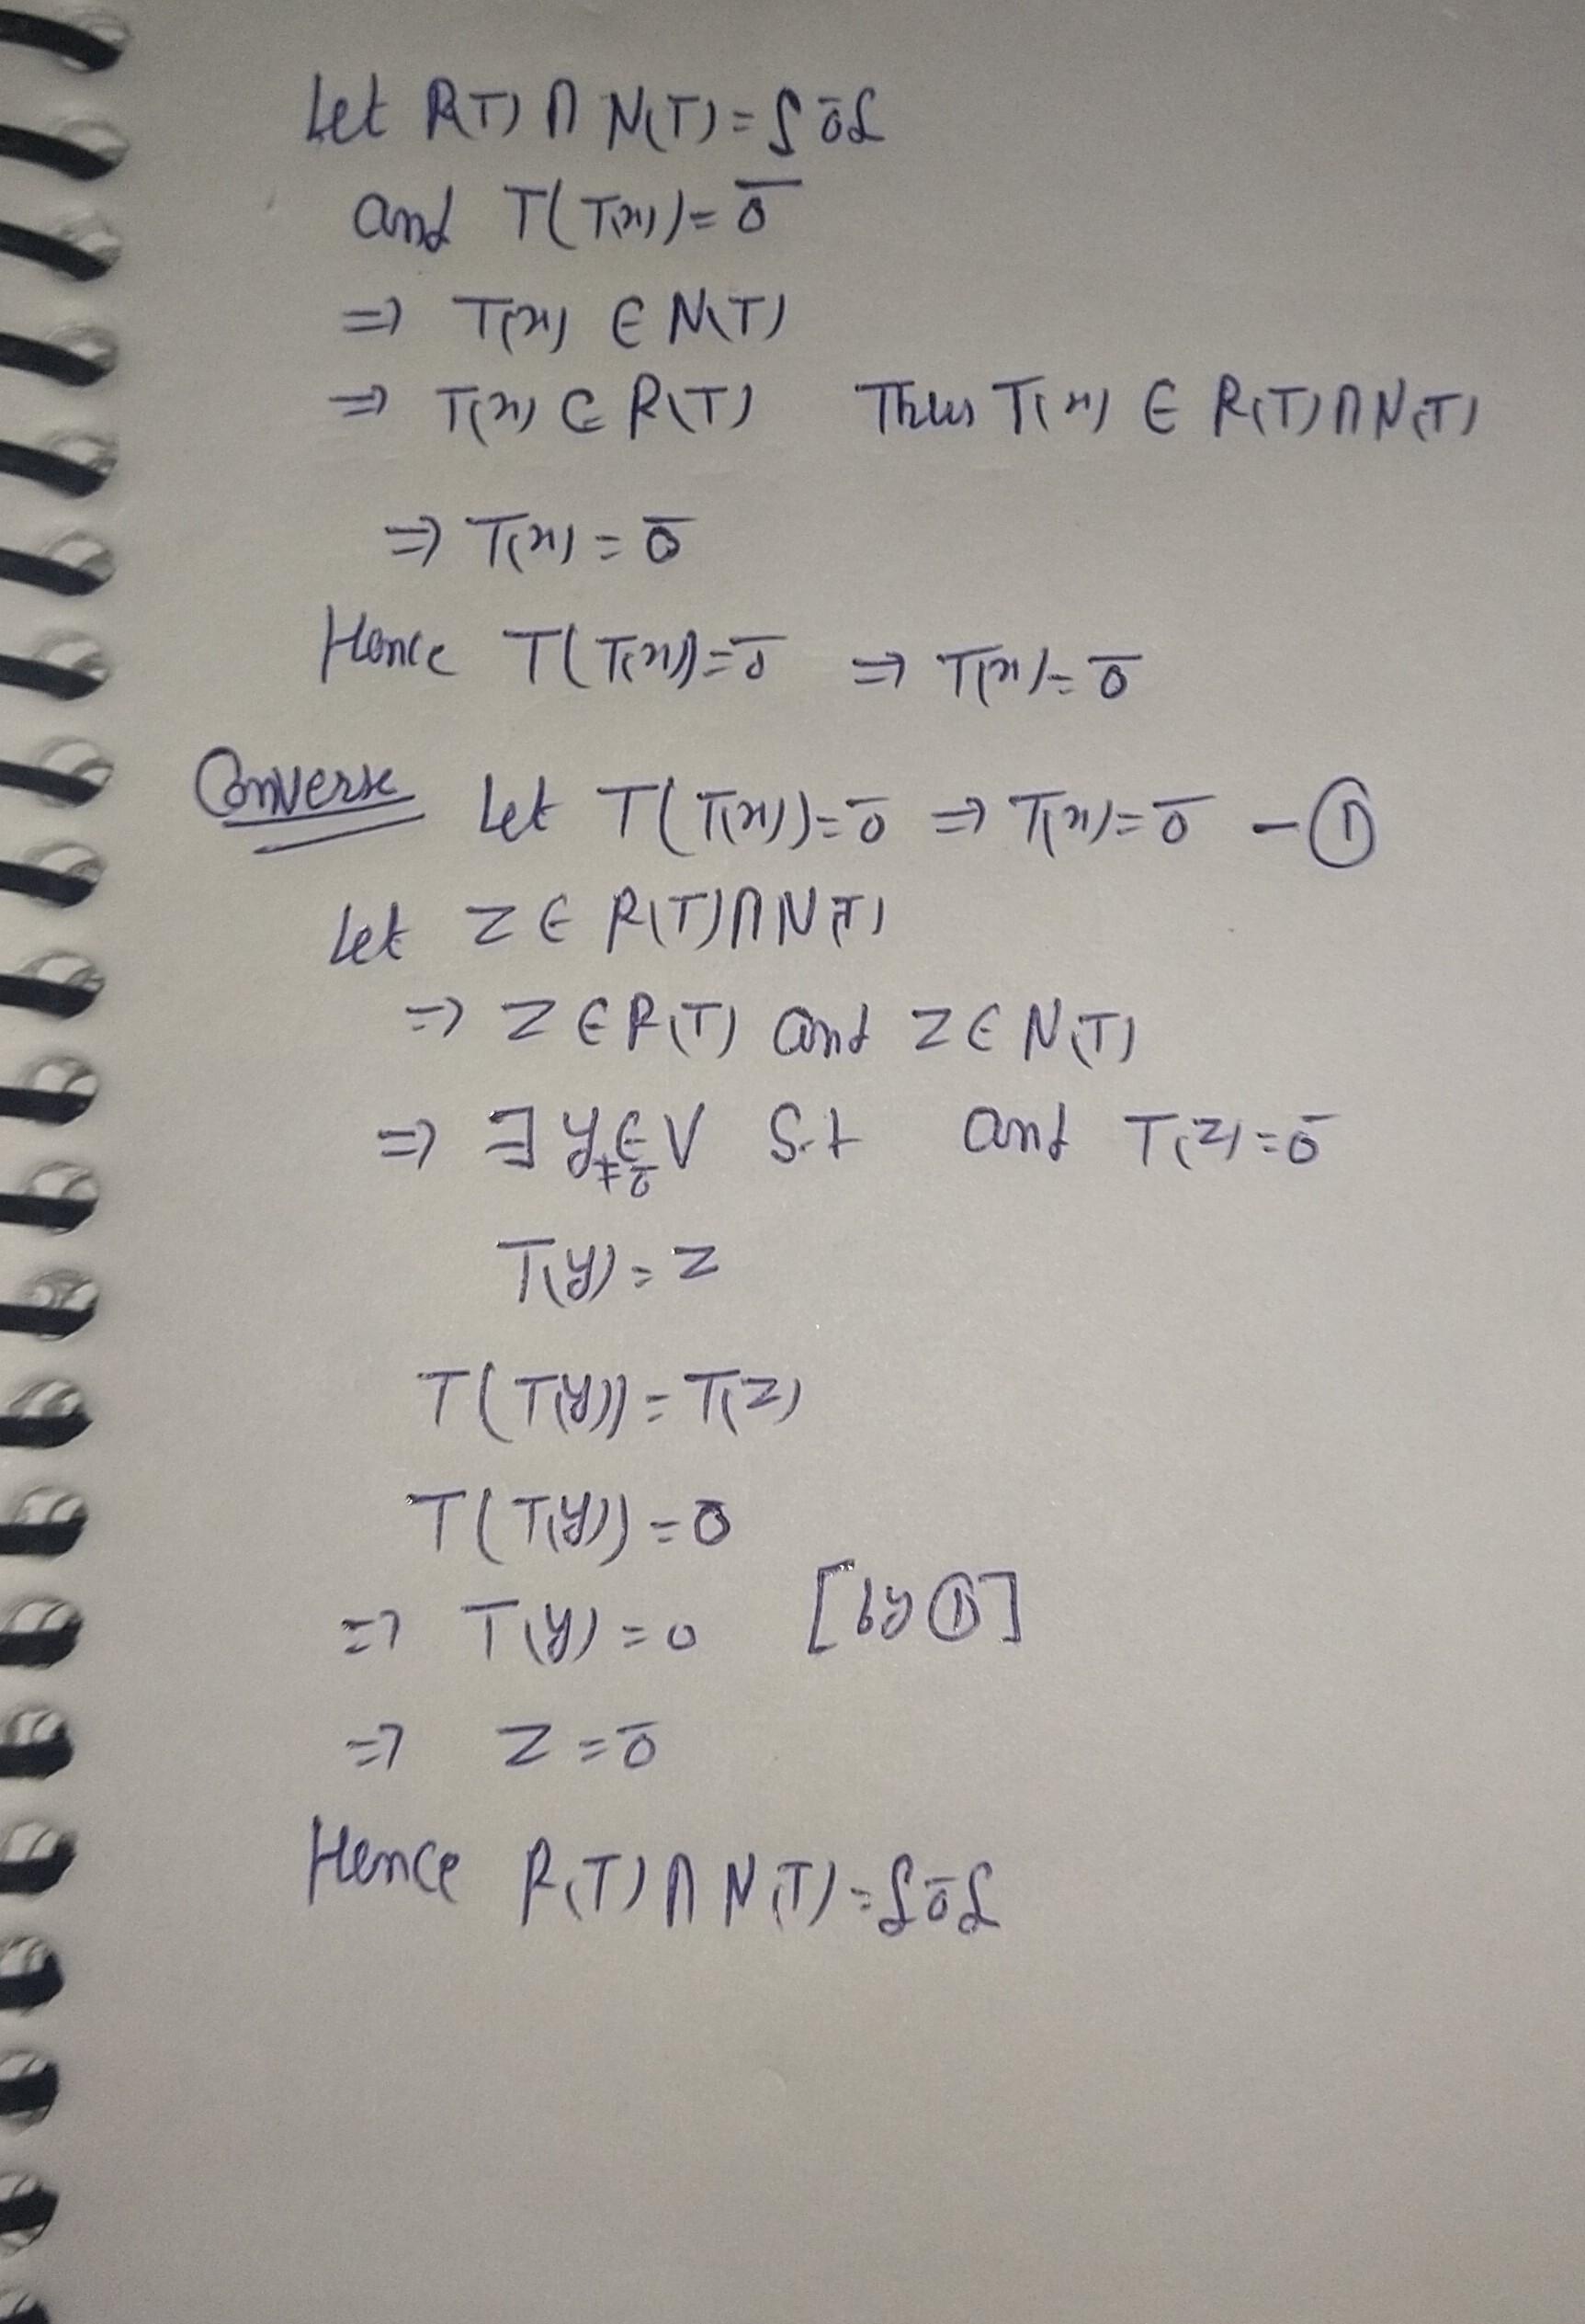 Let R(T) ∩ N(T) = {ō}
and T(T(x)) = ō
⇒ T(x) ∈ N(T)
⇒ T(x) ∈ R(T) Thus T(x) ∈ R(T) ∩ N(T)
⇒ T(x) = ō
Hence T(T(x)) = ō ⇒ T(x) = ō
Converse Let T(T(x)) = ō ⇒ T(x) = ō – ①
Let z ∈ R(T) ∩ N(T)
⇒ z ∈ R(T) and z ∈ N(T)
⇒ ∃ y ∈ V S.t and T(z) = ō
≠ ō
T(y) = z
T(T(y)) = T(z)
T(T(y)) = ō
⇒ T(y) = 0 [by ①]
⇒ z = ō
Hence R(T) ∩ N(T) = {ō}